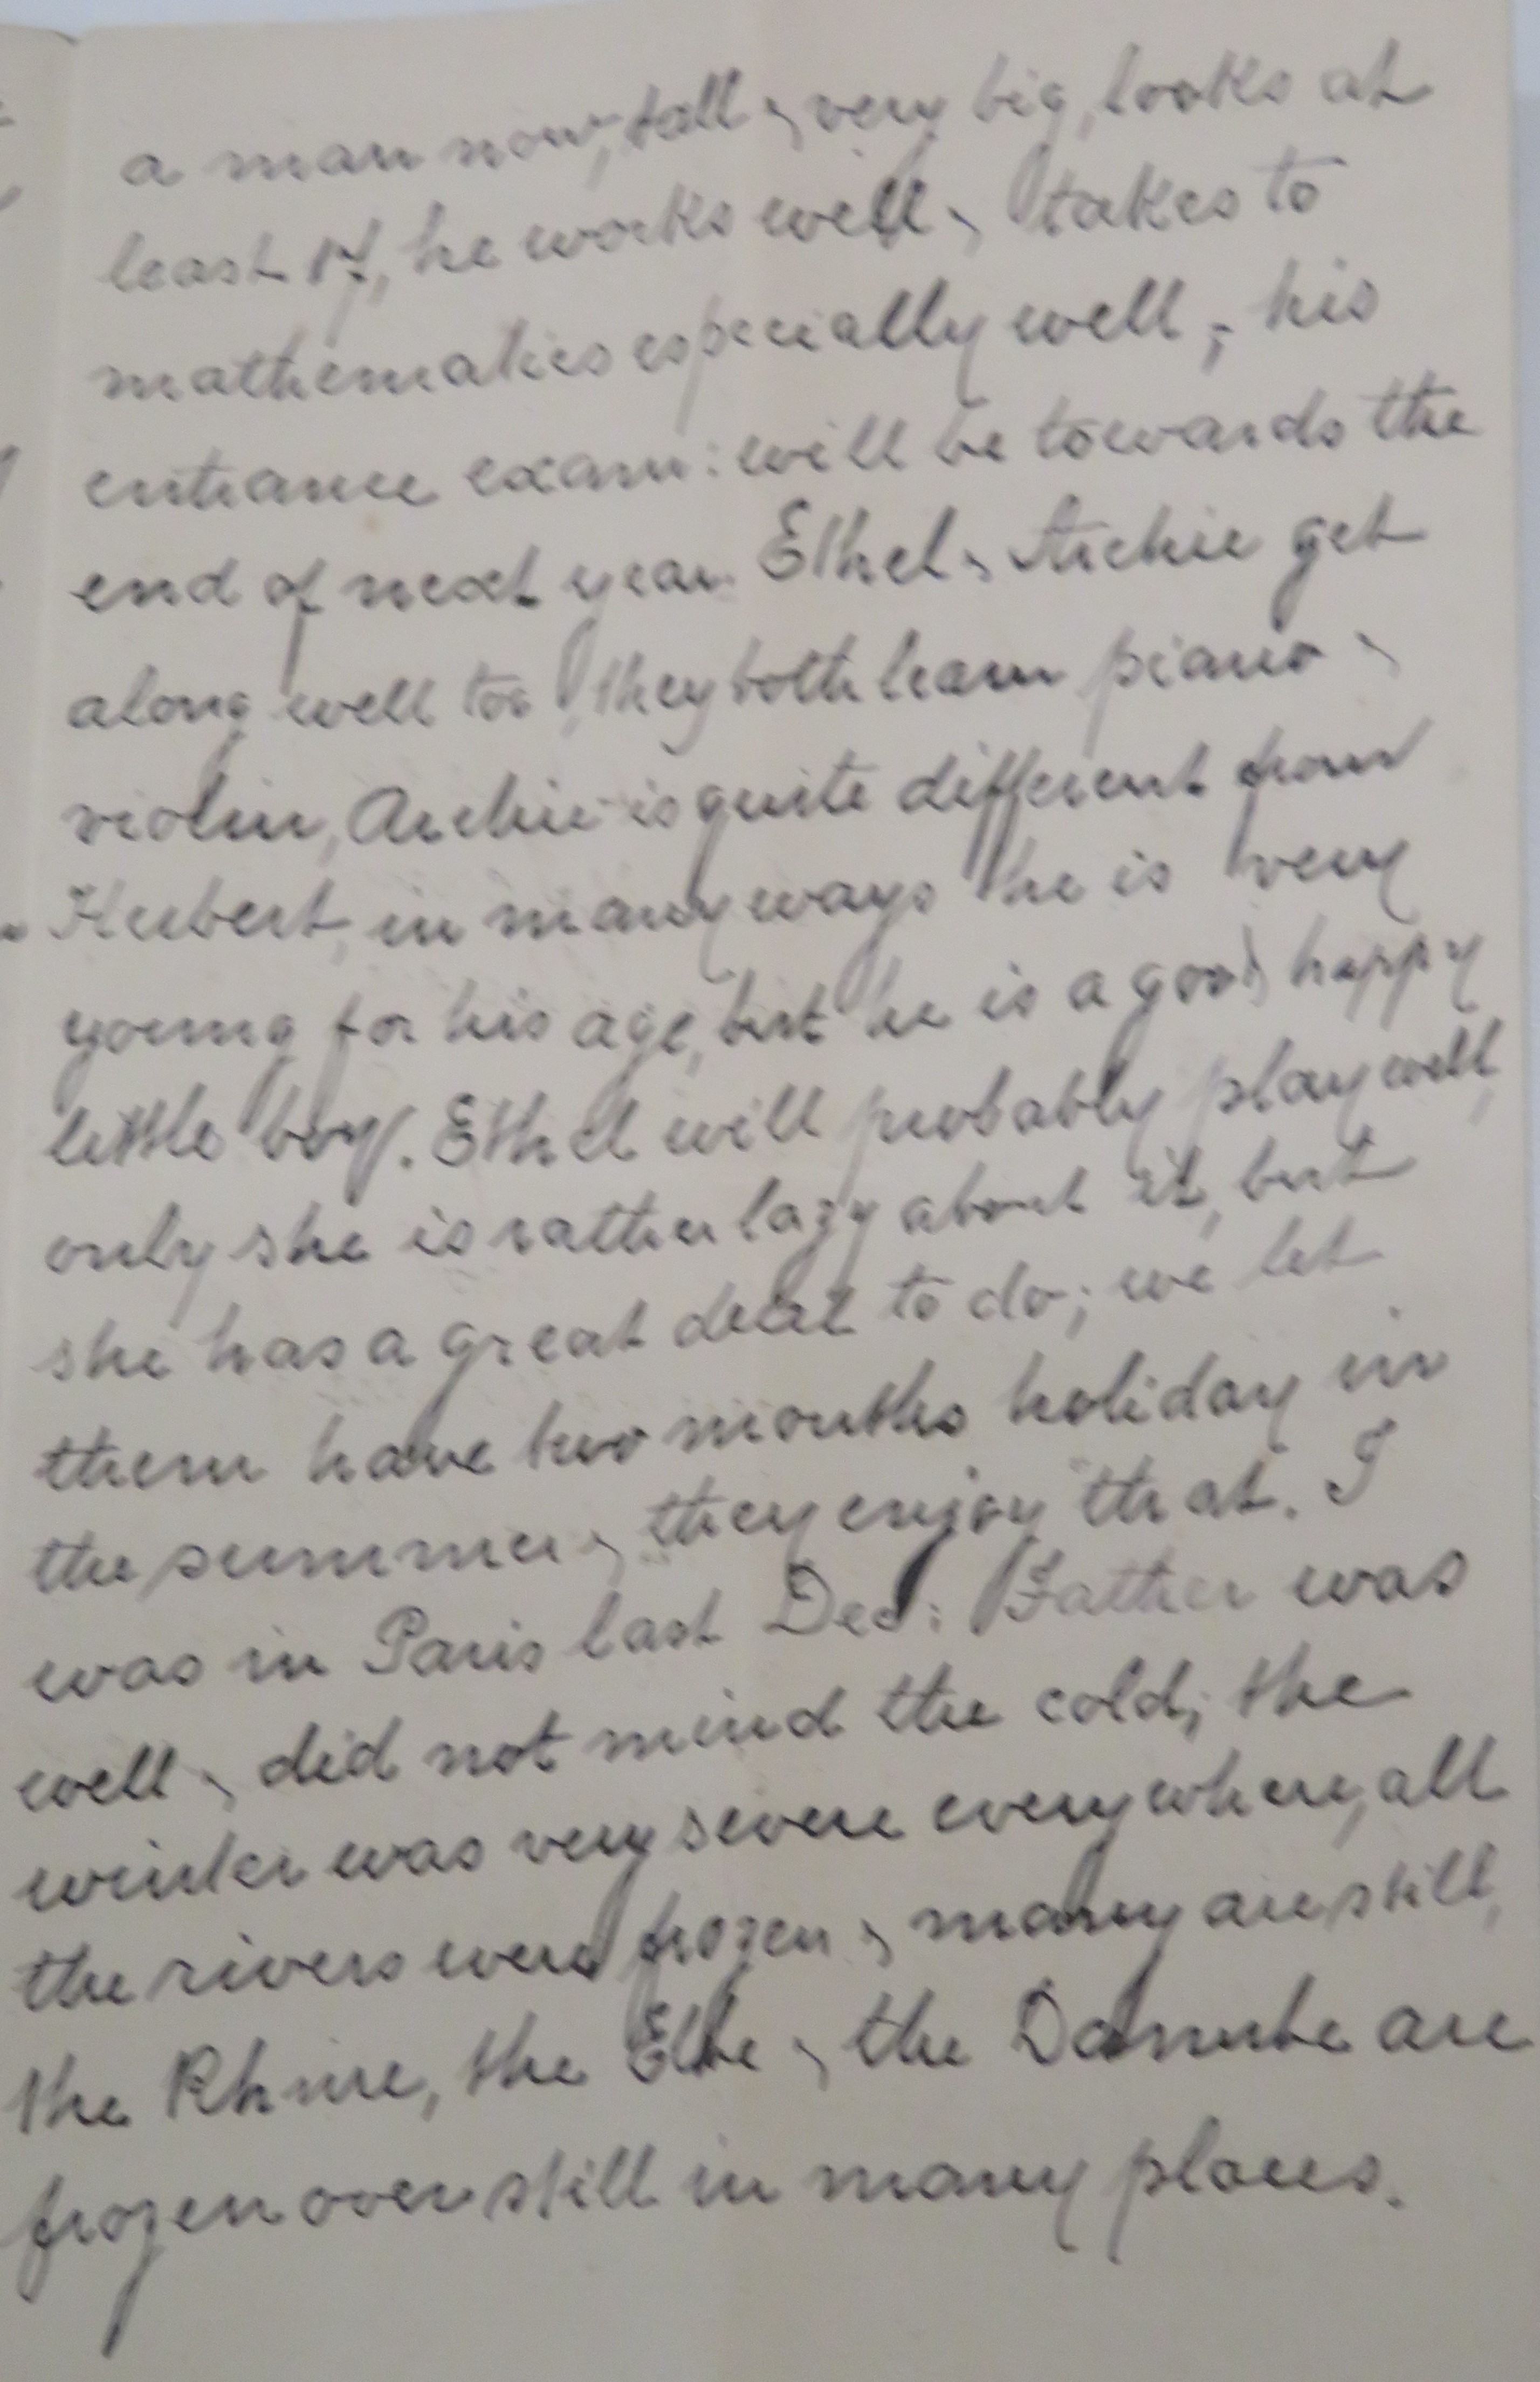 a man now, tall & very big, looks at
least 17, he works well & takes to
mathematics especially well; his
entrance exam: will be towards the
end of next year. Ethel & Archie get
along well too, they both learn piano &
violin, Archie is quite different from
Hubert, in many ways he is very
young for his age, but he is a good happy
little boy. Ethel will probably play well,
only she is rather lazy about it, but
she has a great deal to do; we let
them have two months holiday in
the summer & they enjoy that. I
was in Paris last Dec: Father was
well & did not mind the cold; the
winter was very severe everywhere, all
the rivers were frozen & many are still,
the Rhine, the Elbe & the Danube are
frozen over still in many places.